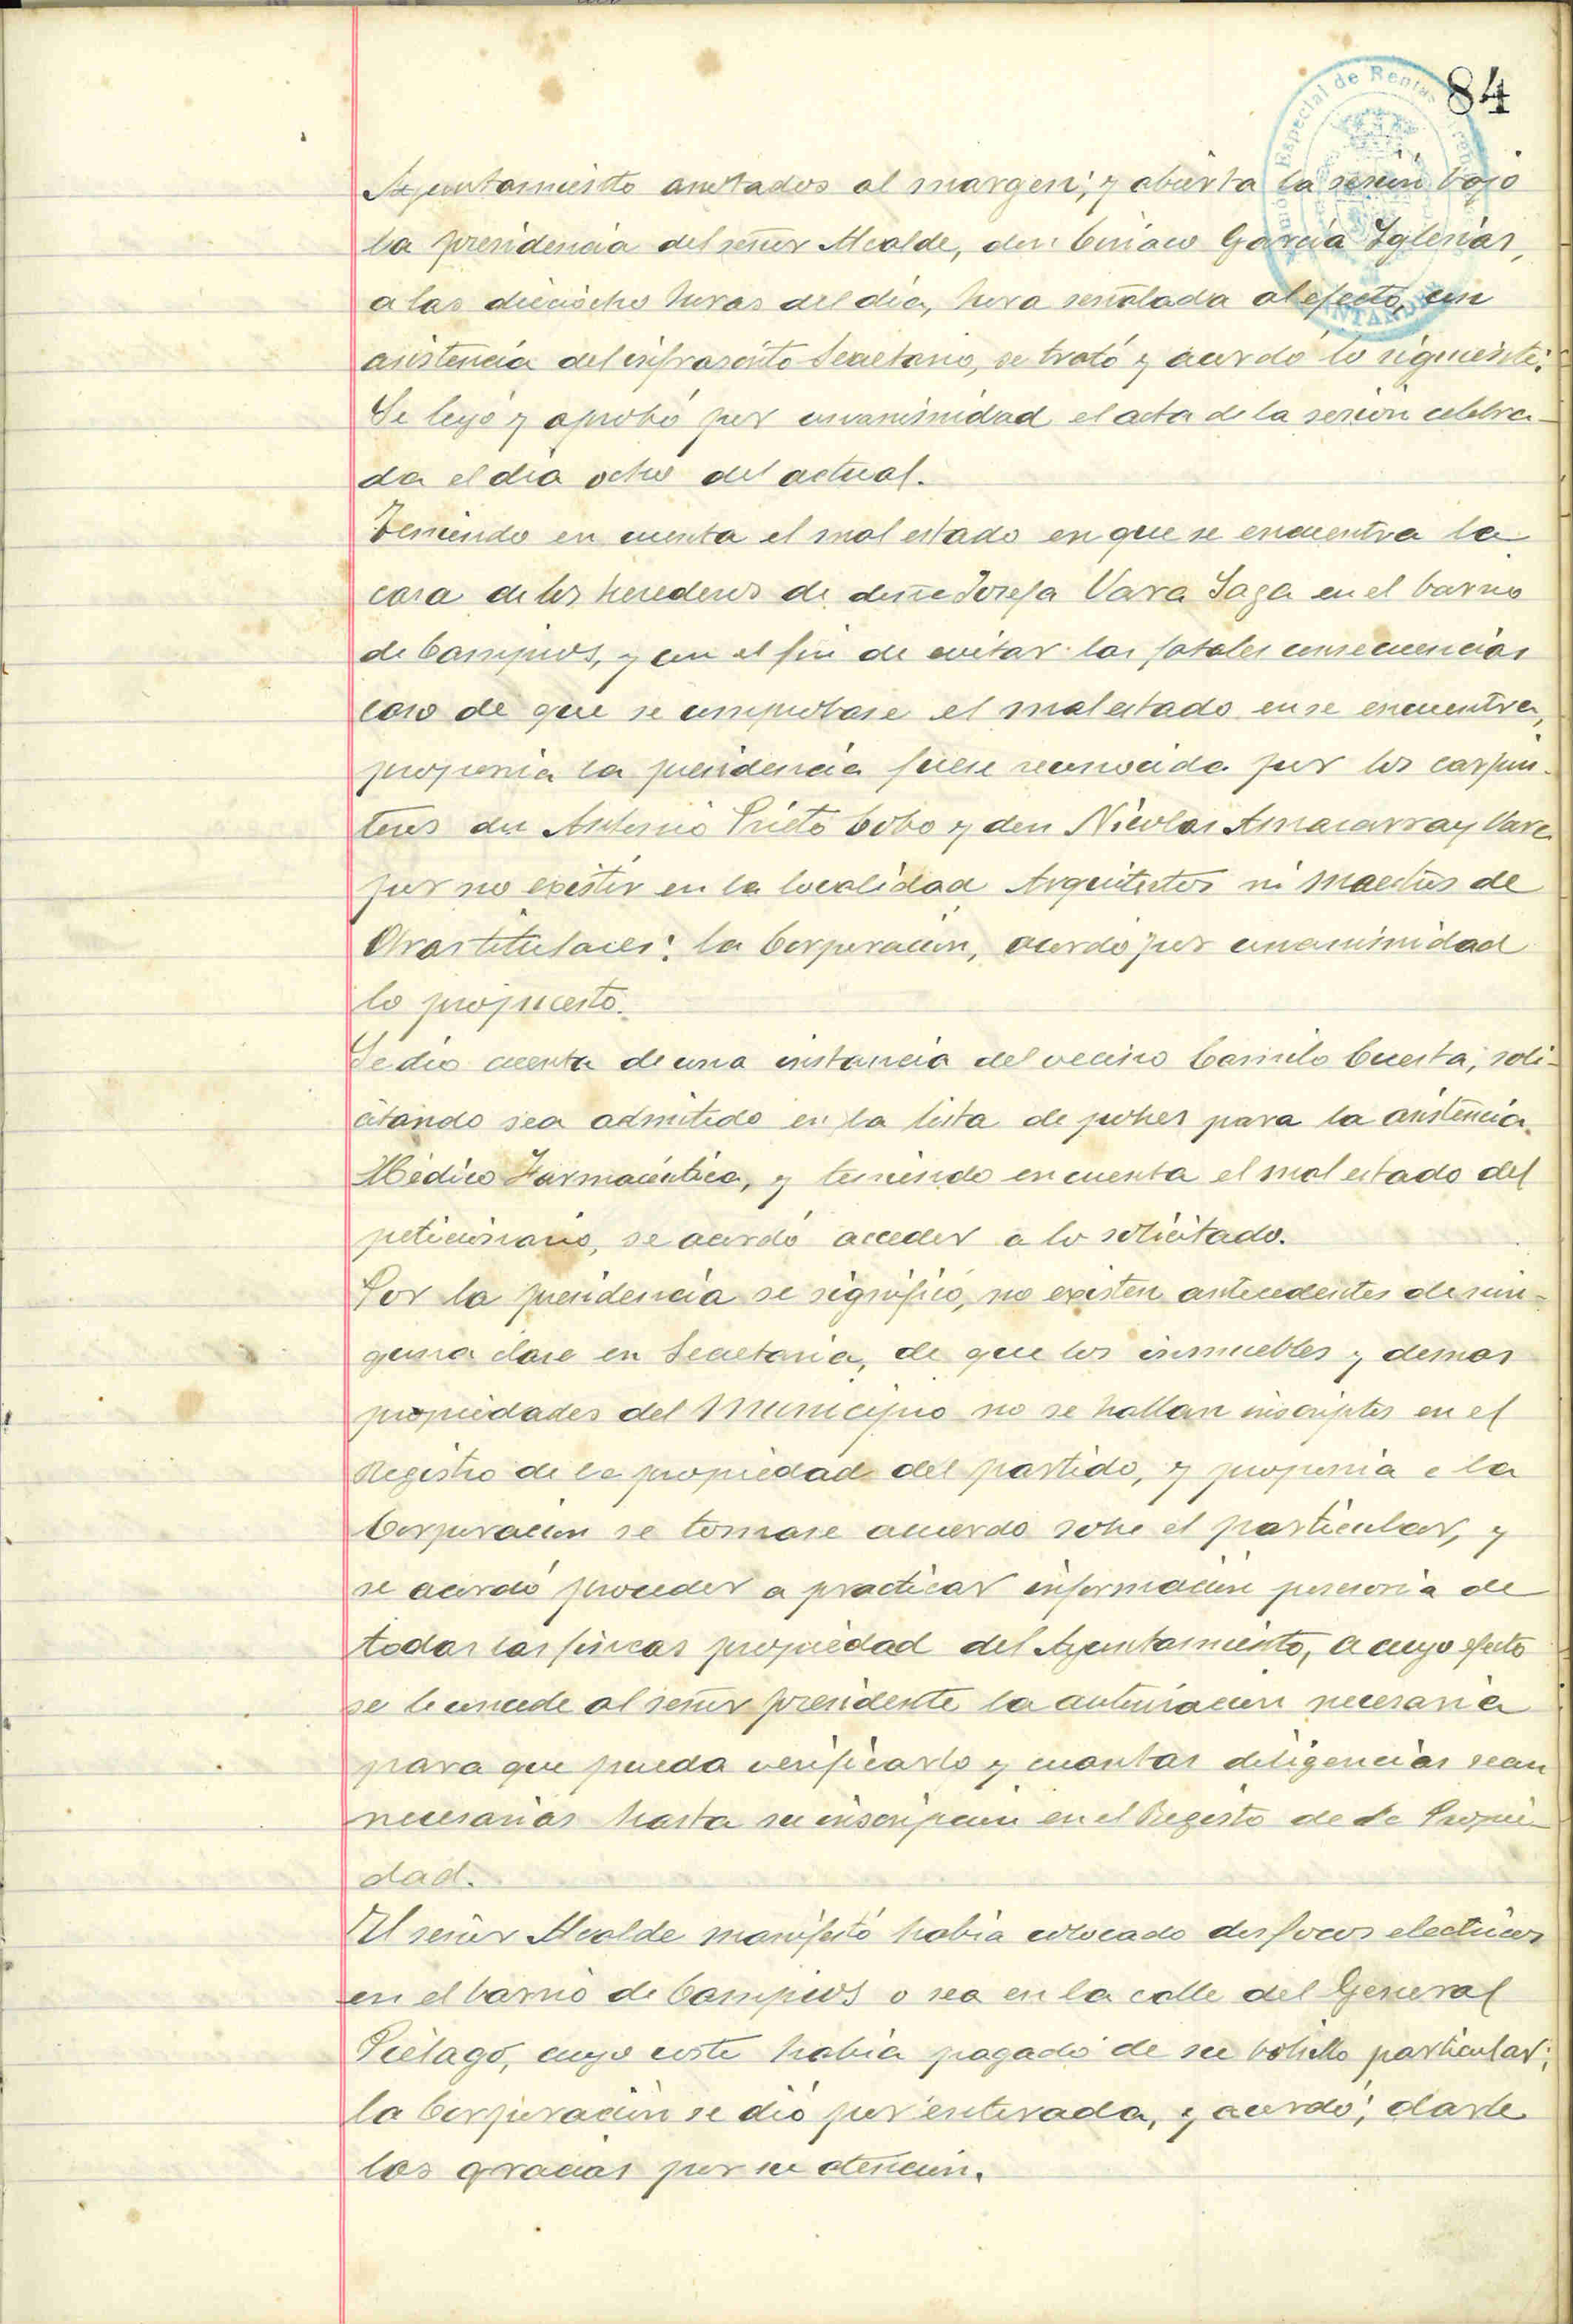 84
Especial de Rentas Arrend
SANTANDER
Ayuntamiento anotados al margen; y abierta la sesión bajo
la presidencia del señor Alcalde, don Ciriaco García Iglesias,
a las dieciocho horas del día, hora señalada al efecto, con
asistencia del infrascrito Secretario, se trató y acordó lo siguiente:
Se leyó y aprobó por unanimidad el acta de la sesión celebra-
da el día ocho del actual.
Teniendo en cuenta el mal estado en que se encuentra la
casa de los herederos de doña Josefa Vara Saga en el barrio
de Campios, y con el fin de evitar las fatales consecuencias
caso de que se comprobase el mal estado en se encuentra,
proponia la presidencia fuese reconocida por los carpin-
teros don Antonio Prieto Cobo y don Nicolas Amacarray Vara
por no existir en la localidad Arquitectos ni Maestros de
Obras titulares: la Corporación, acordó por unanimidad
lo propuesto.
Se dio cuenta de una instancia del vecino Camilo Cuesta, soli-
citando sea admitido en la lista de pobres para la asistencia
Médico Farmacéutica, y teniendo en cuenta el mal estado del
peticionario, se acordó acceder a lo solicitado.
Por la presidencia se significó, no existen antecedentes de nin-
guna clase en Secretaria, de que los inmuebles y demas
propiedades del Municipio no se hallan inscriptos en el
Registro de la propiedad del partido, y proponia a la
Corporación se tomase acuerdo sobre el particular, y
se acordó proceder a practicar información posesoria de
todas las fincas propiedad del Ayuntamiento, a cuyo efecto
se le concede al señor presidente la autorización necesaria
para que pueda verificarlo y cuantas diligencias sean
necesarias hasta su inscripción en el Registro de la Propie-
dad.
El señor Alcalde manifestó había colocado dos focos electricos
en el barrio de Campios o sea en la calle del General
Piélago, cuyo coste había pagado de su bolsillo particular;
la Corporación se dió por enterada, y acordó, darle
las gracias por su atención.